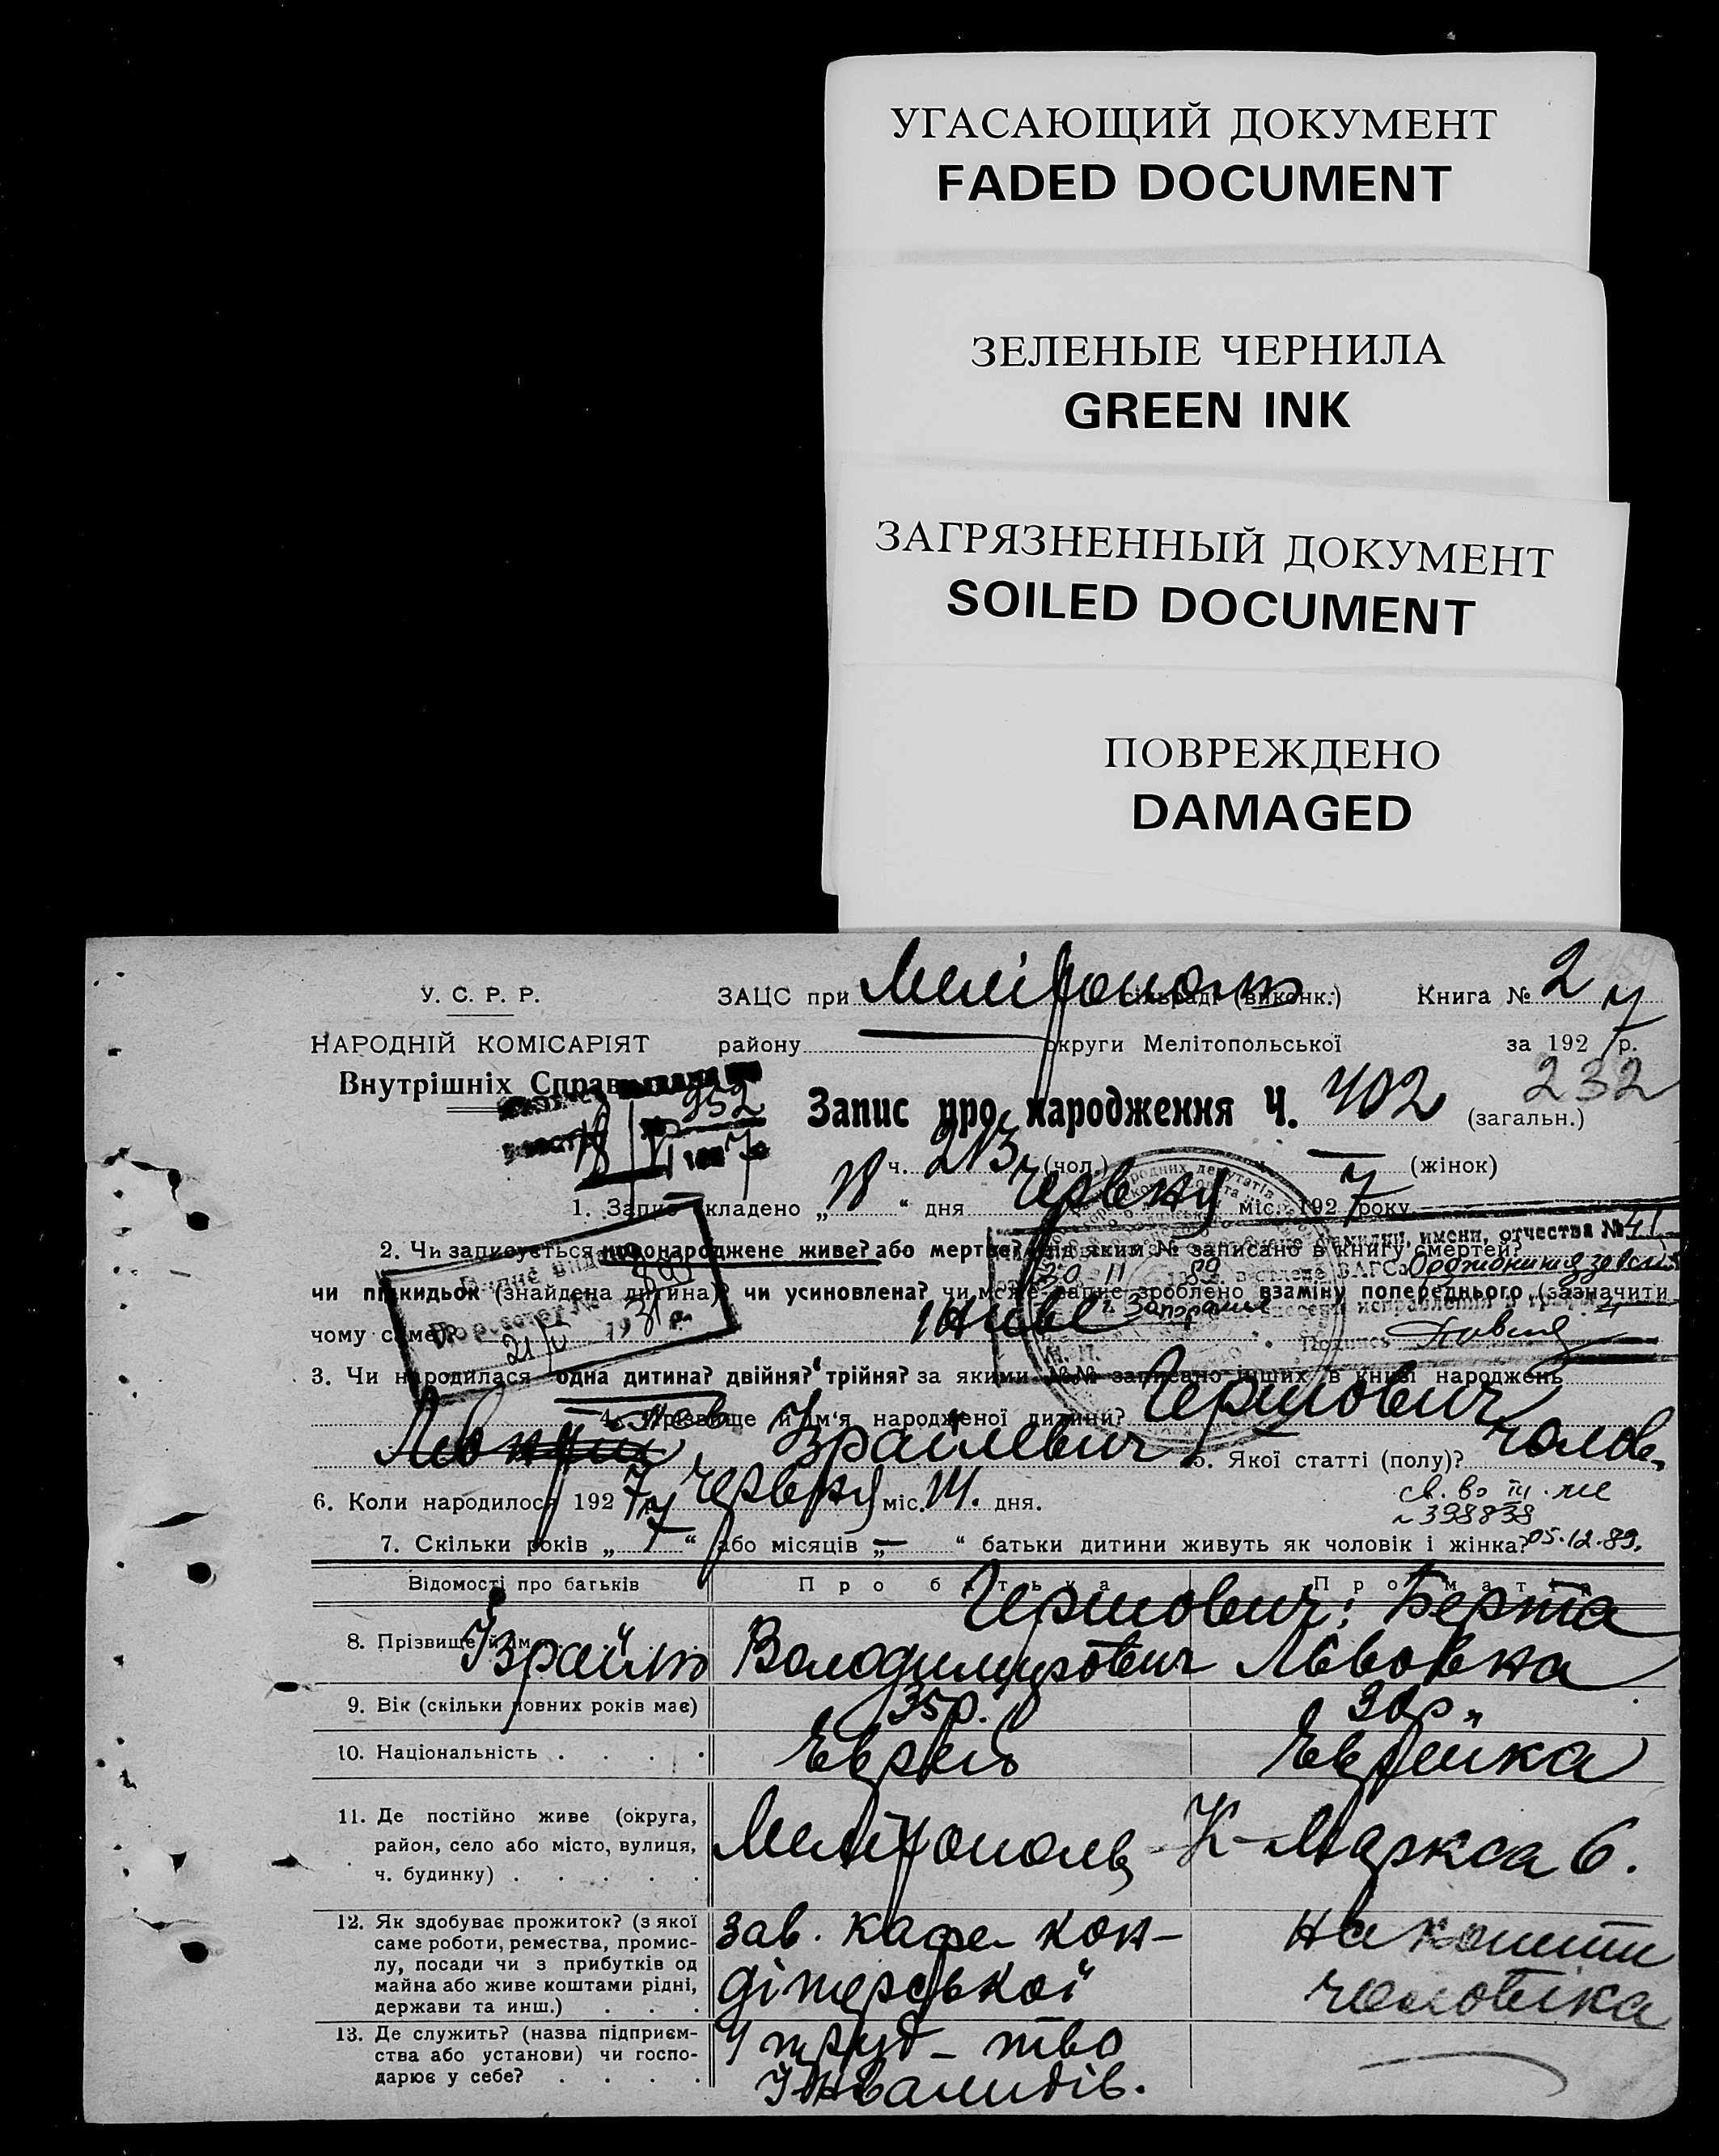 УГАСАЮЩИЙ ДОКУМЕНТ
FADED DOCUMENT
ЗЕЛЕНЫЕ ЧЕРНИЛА
GREEN INK
ЗАГРЯЗНЕННЫЙ ДОКУМЕНТ
SOILED DOCUMENT
ПОВРЕЖДЕНО
DAMAGED
У. С. Р. Р. ЗАЦС при Мелітополь сільраді (виконк.) Книга № 2
НАРОДНІЙ КОМІСАРІЯТ району — округи Мелітопольської за 1927 р.
Внутрішніх Справ
232
952
Запис про народження Ч. 402 (загальн.)
18 ч. 213 (чол.) ч. — (жінок)
1. Запис складено „18“ дня червня міс. 1927 року
2. Чи записується новонароджене живе? або мертве? під яким № записано в книгу смертей?
фамилии, имени, отчества № 41
30 11 1989 в отделе ЗАГС Орджоникидзевск
чи підкидьок (знайдена дитина)? чи усиновлена? чи може запис зроблено взаміну попереднього (зазначити
г. Запорожье внесены исправления в графы 4
чому саме)? живе
21/V 1931 р.
Подпись
3. Чи народилася одна дитина? двійня? трійня? за якими №№ записано інших в книзі народжень
4. Прізвище й ім'я народженої дитини? Гершович
Лев Ізраїлевич 5. Якої статті (полу)? чолов.
6. Коли народилося 1927 р. червня міс. 14. дня.
св. во III. же
№ 398838
7. Скільки років „7“ або місяців „—“ батьки дитини живуть як чоловік і жінка? 05.12.89.
Відомості про батьків Про батька Про матір
Гершович: Берта
8. Прізвище й ім'я Ізраїль Володимирович Львовна
9. Вік (скільки повних років має) 35 р. 30 р.
10. Національність . . . . Еврей Еврейка
11. Де постійно живе (округа,
район, село або місто, вулиця,
ч. будинку) . . . . . Мелітополь К-Маркса 6.
12. Як здобуває прожиток? (з якої
саме роботи, ремества, промис-
лу, посади чи з прибутків од
майна або живе коштами рідні,
держави та инш.) . . .
зав. кафе кон-
дітерської
на кошти
чоловіка
13. Де служить? (назва підприєм-
ства або установи) чи госпо-
дарює у себе? . . . .
У труд-тво
Інвалидів.